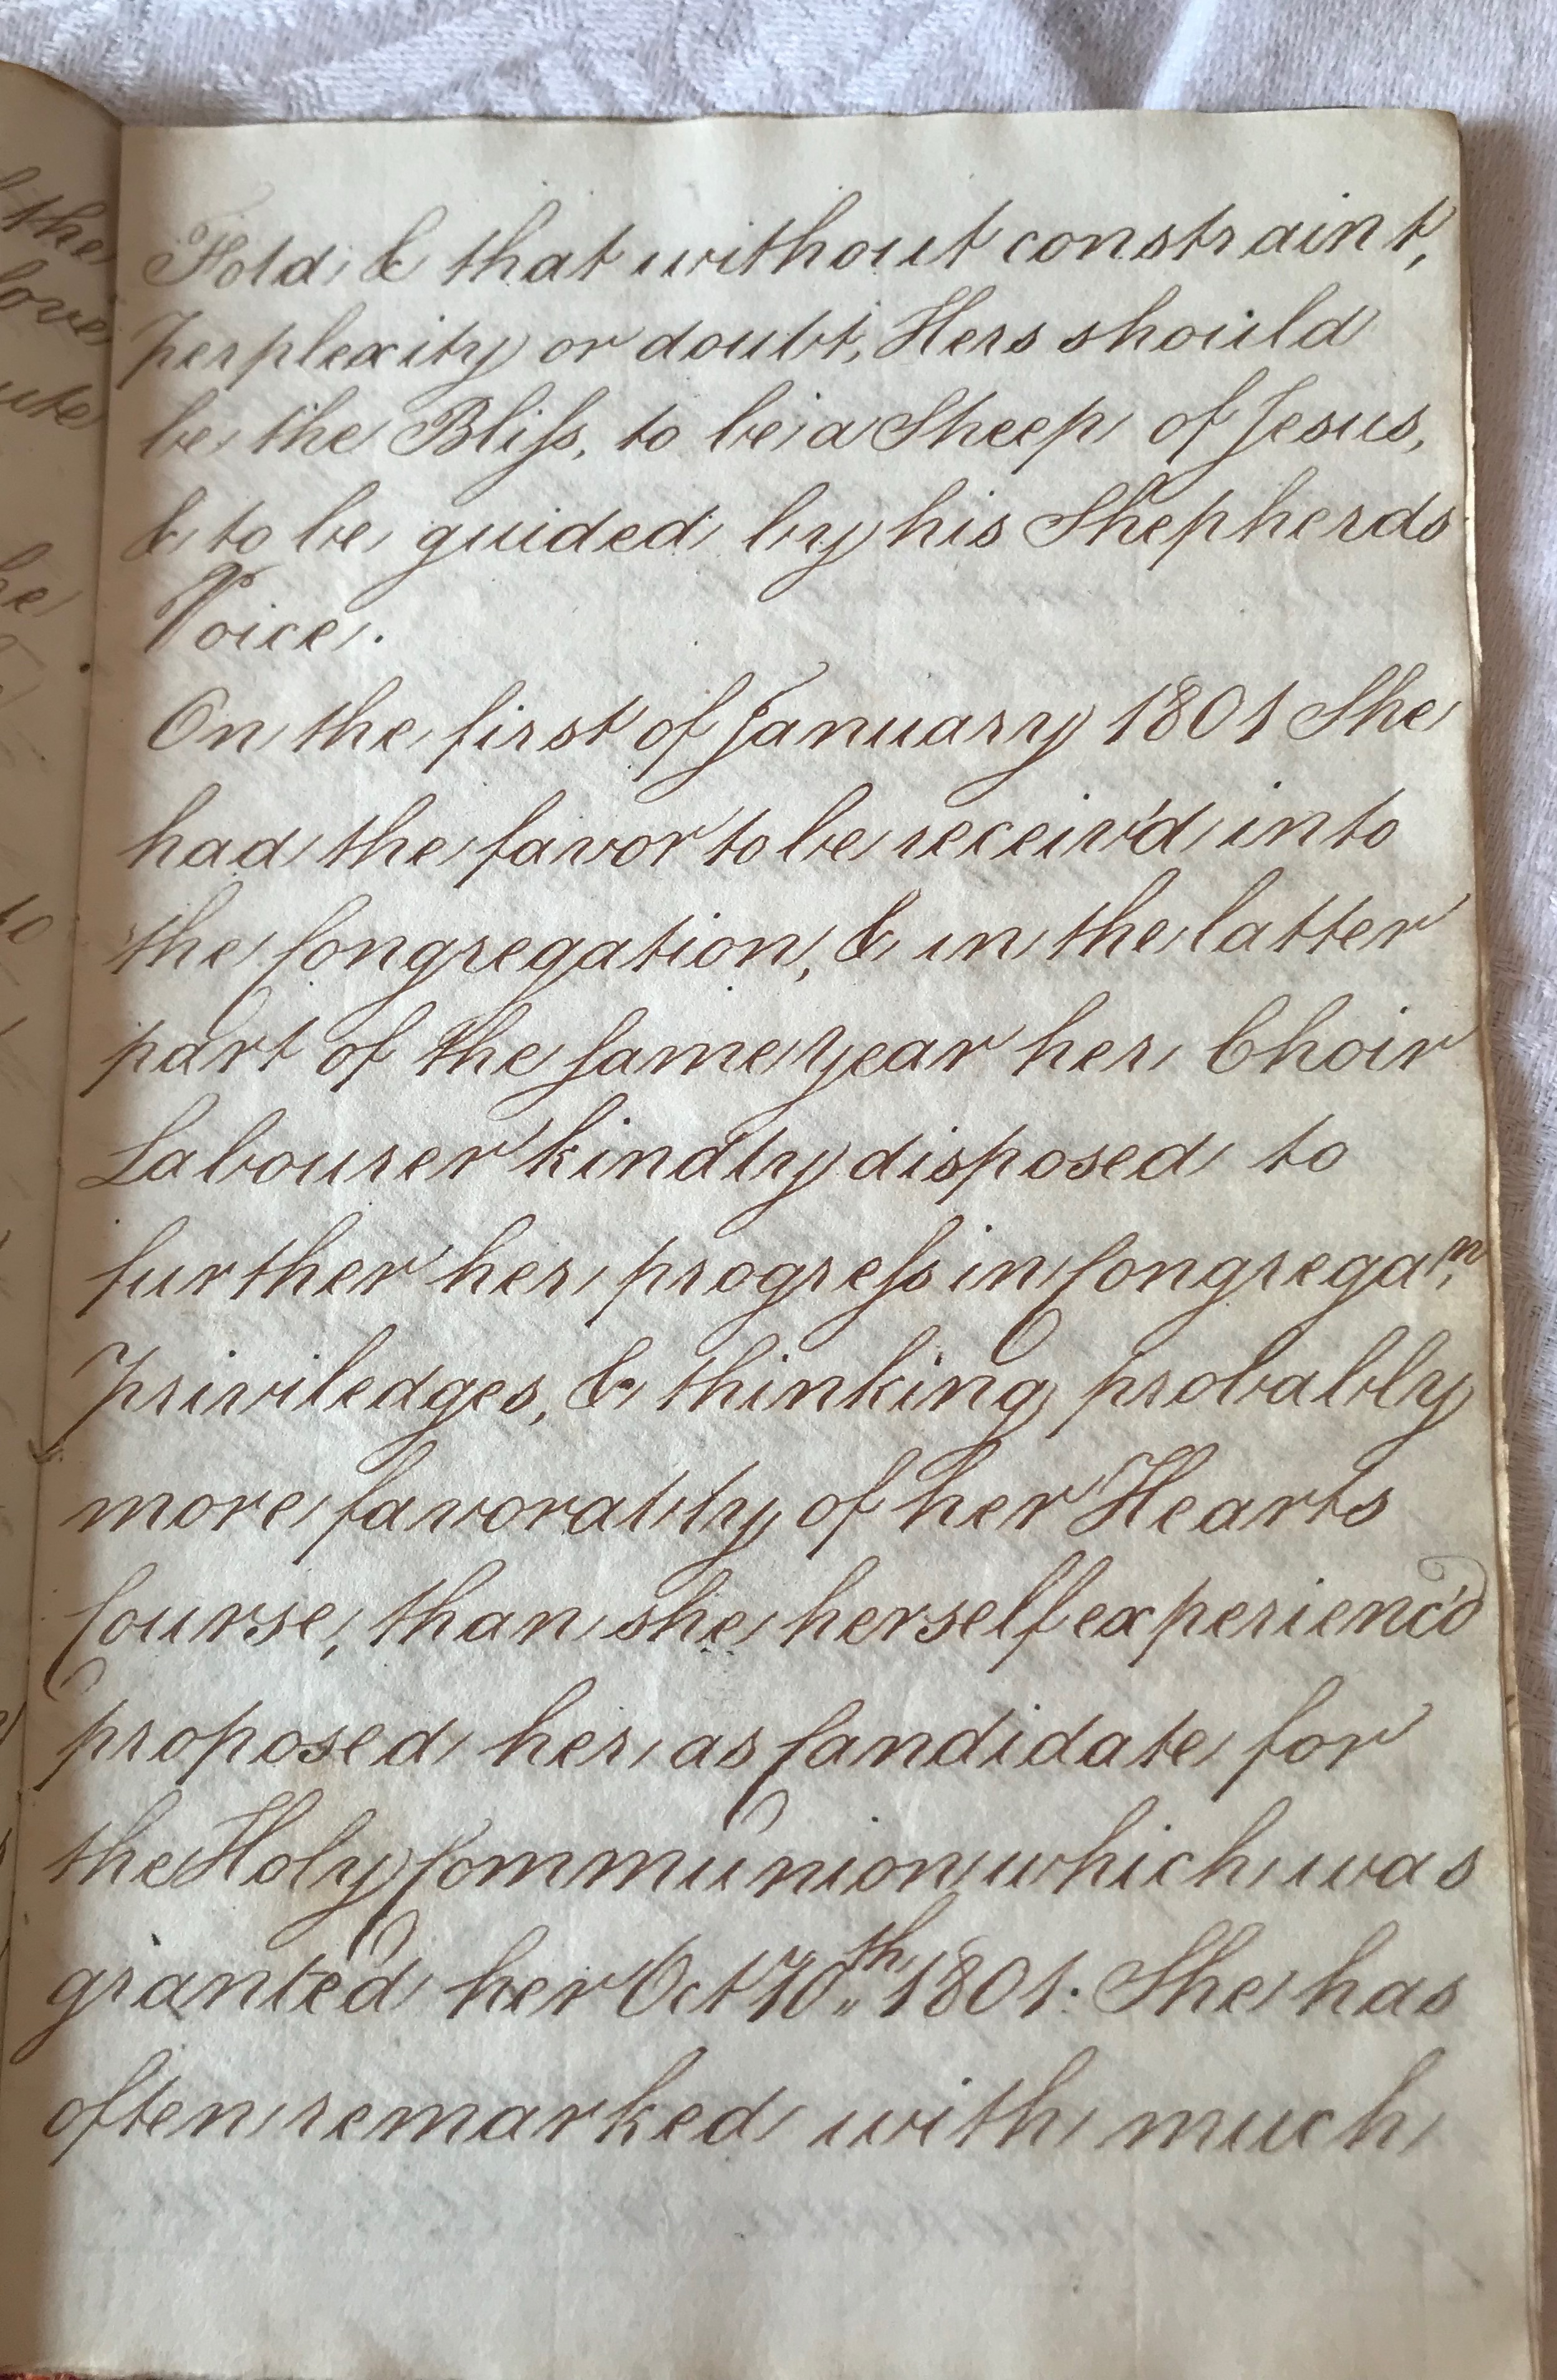 Fold, & that without constraint,
perplexity or doubt, Hers should
be the Bliſs, to be a Sheep of Jesus,
& to be guided by his Shepherds
Voice.
On the first of January 1801 She
had the favor to be receiv'd into
the Congregation, & in the latter
part of the same Year her Choir
Labourer kindly disposed to
further her progreſs in Congregatn.
Priviledges, & thinking probably
more favorably of her Hearts
Course, than she herself experienc'd
proposed her as Candidate for
the Holy Communion which was
granted her Oct 10th 1801. She has
often remarked with much
the
love
ute
he
to